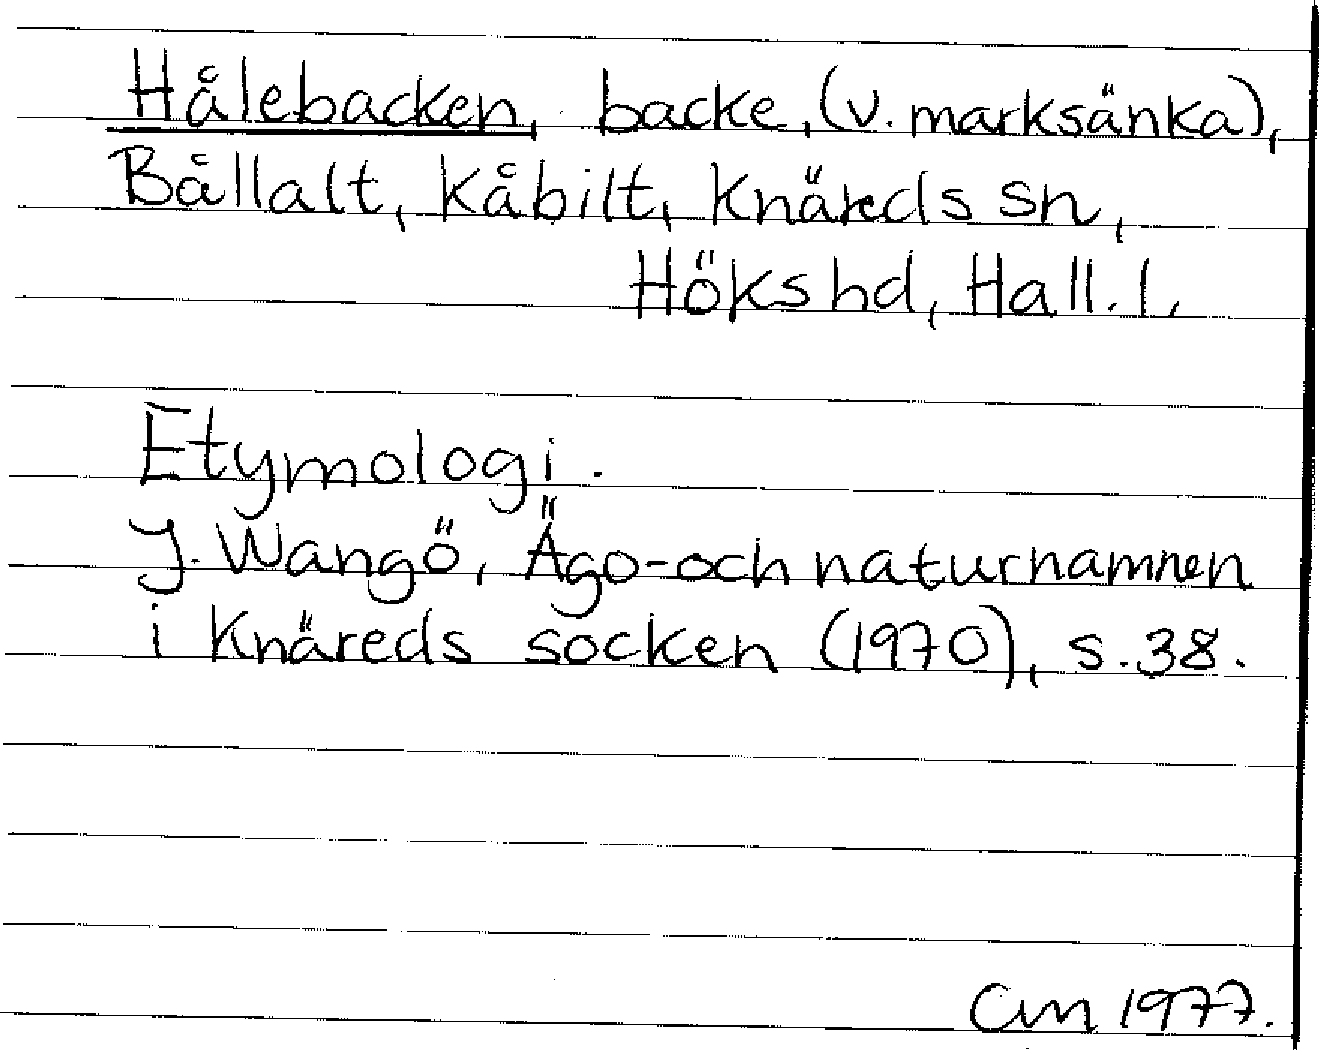 Hålebacken, backe, (v. marksänka),
Bållalt, Kåbilt, Knäreds sn,
Höks hd, Hall. l.
Etymologi.
J. Wangö, Ägo- och naturnamnen
i Knäreds socken (1970), s. 38.
Cm 1977.